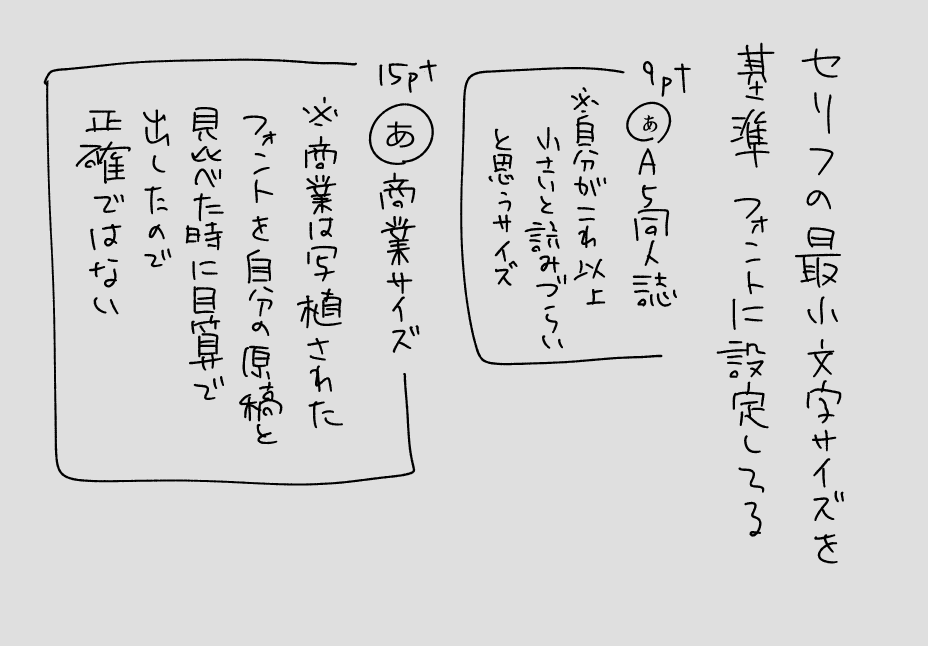 セリフの最小文字サイズを
基準フォントに設定してる
9pt
あ A5同人誌
※自分がこれ以上
小さいと読みづらい
と思うサイズ
15pt
あ 商業サイズ
※商業は写植された
フォントを自分の原稿と
見比べた時に目算で
出したので
正確ではない